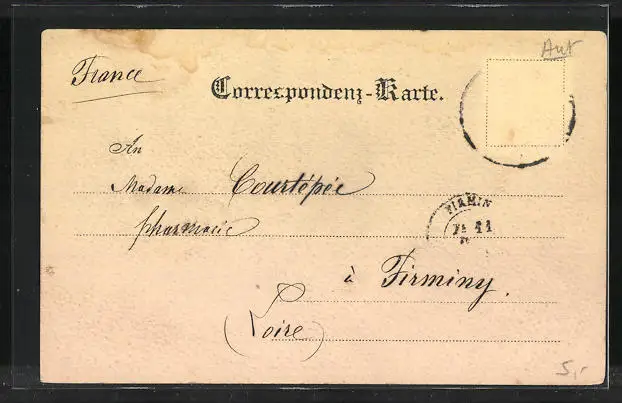 Aut
France
Correspondenz-Karte.
An
Madame Courtépée
pharmacie
FIRMIN
11
à Firminy.
(Loire)
5,-